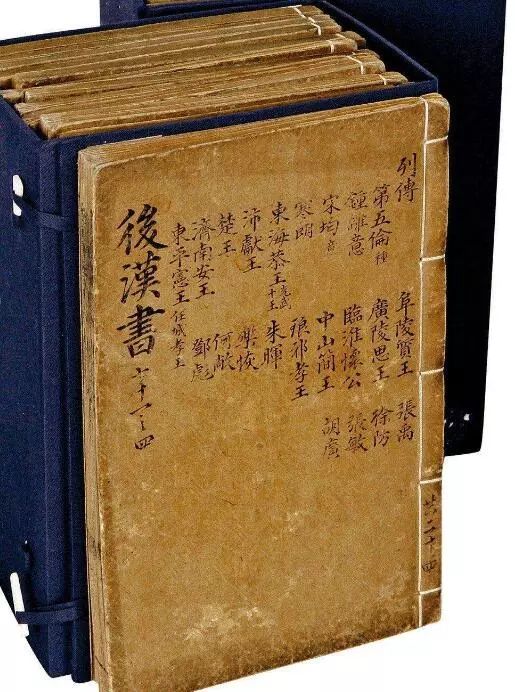 共二十四
列傳 阜陵質王 張禹
第五倫種 廣陵思王 徐防
鍾離意 臨淮懷公 張敏
宋均意 中山簡王 胡廣
寒朗 琅邪孝王
東海恭王光武十王 朱暉
沛獻王 樂恢
楚王 何敞
濟南安王 鄧彪
東平憲王任城孝王
後漢書 七十一之四